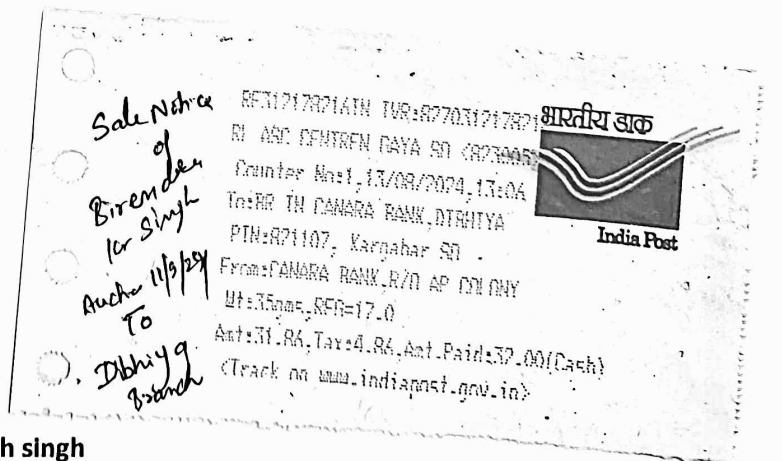 Sale Notice
of
Birendra
kr Singh
Auction 11/9/24
To
Dibhiya
Branch
RF312178216IN IVR:8277031217821
RL ASC CENTREN GAYA SO <823005>
Counter No:1,13/08/2024,13:06
To:BR IN CANARA BANK,DIBHIYA
PIN:821107, Kargahar SO
From:CANARA BANK,R/O AP COLONY
Wt:35gms,REG=17.0
Amt:31.86,Tax:4.86,Amt.Paid:32.00(Cash)
<Track on www.indiapost.gov.in>
भारतीय डाक
India Post
h singh